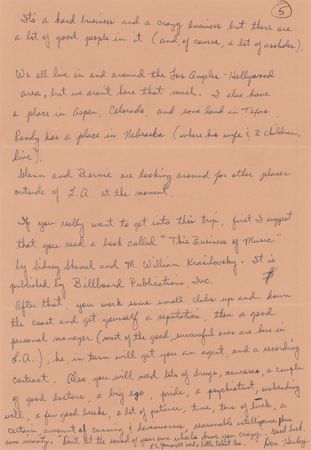 5
It's a hard business and a crazy business but there are
a lot of good people in it (and, of course, a lot of assholes).
We all live in and around the Los Angeles-Hollywood
area, but we aren't here that much. I also have
a place in Aspen, Colorado and some land in Texas.
Randy has a place in Nebraska (where his wife & 2 children
live).
Glenn and Bernie are looking around for other places
outside of L.A. at the moment.
If you really want to get into this trip, first I suggest
that you read a book called "This Business of Music"
by Sidney Shemel and M. William Krasilovsky. It is
published by Billboard Publications Inc.
After that, you work some small clubs up and down
the coast and get yourself a reputation, then a good
personal manager (most of the good, successful ones are here in
L.A.), he, in turn will get you an agent, and a recording
contract. Also you will need lots of drugs, neuroses, a couple
of good doctors, a big ego, pride, a psychiatrist, unbending
will, a few good breaks, a lot of patience, time, tons of luck, a
certain amount of cunning & deviousness, reasonable intelligence plus
some insanity. "Don't let the sound of your own wheels drive you crazy." Good luck,
P.S. youngest and a little talent too. Don Henley